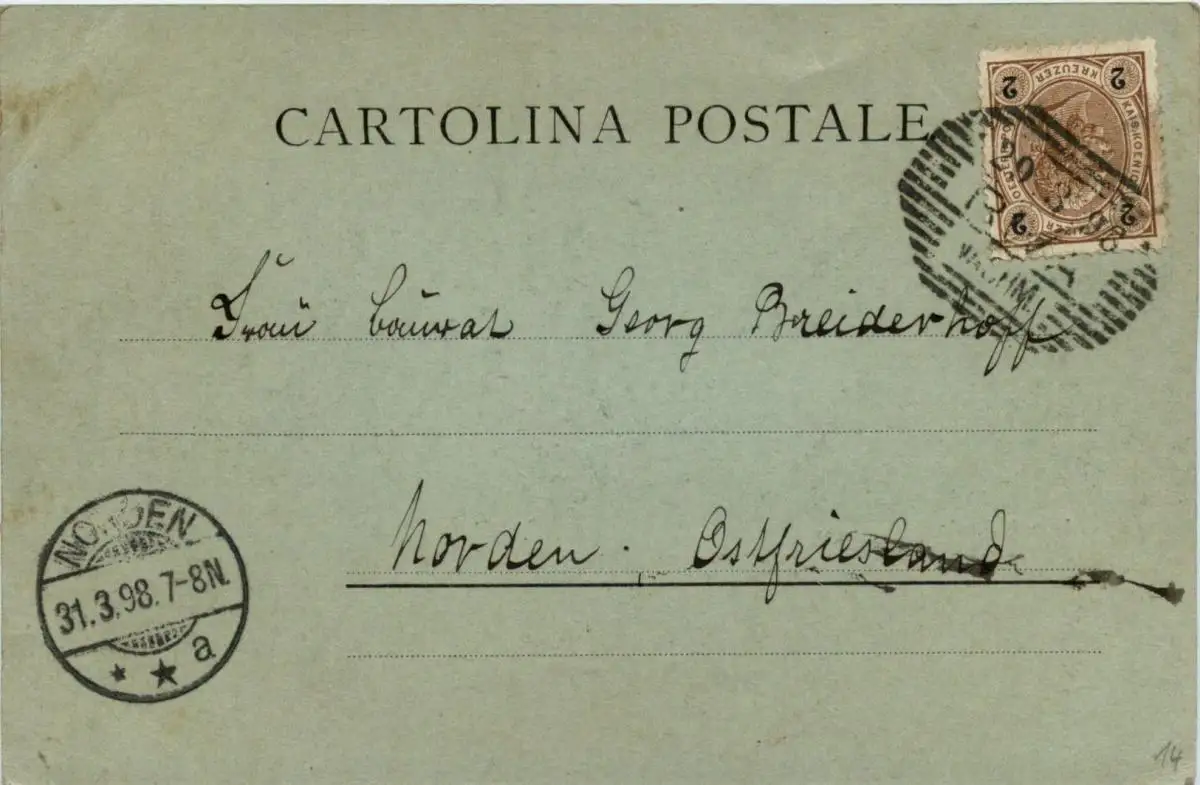 CARTOLINA POSTALE
2 KREUZER 2
KAIS. KOENIGL.
2 2
Frau Baurat Georg Breiderhoff
Norden. Ostfriesland
NORDEN
31.3.98.7-8N.
* * a
14